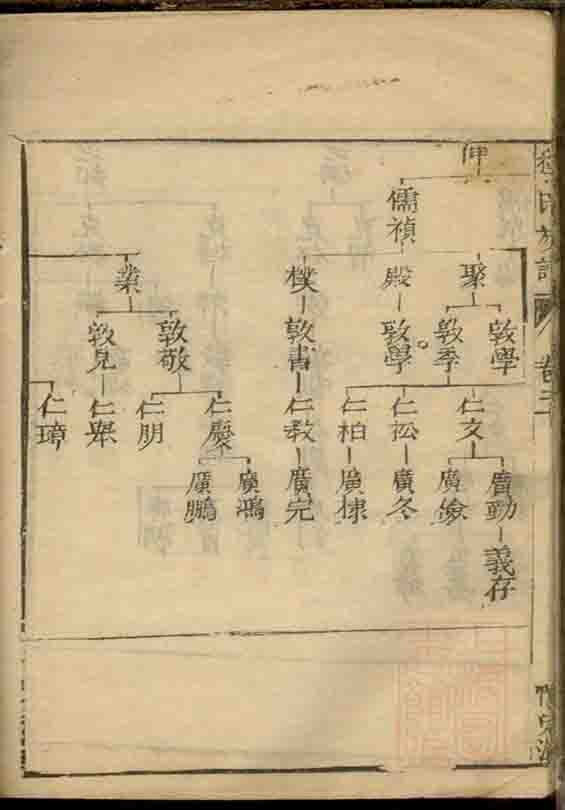 伸
儒禎
聚 殿 樸 業
敦學 敦季 敦學 敦書 敦敬 敦見
仁文 仁松 仁柏 仁教 仁慶 仁朋 仁舉 仁璋
廣勤 廣儉 廣冬 廣棣 廣完 廣鴻 廣鵬
義存
氏族譜 卷二